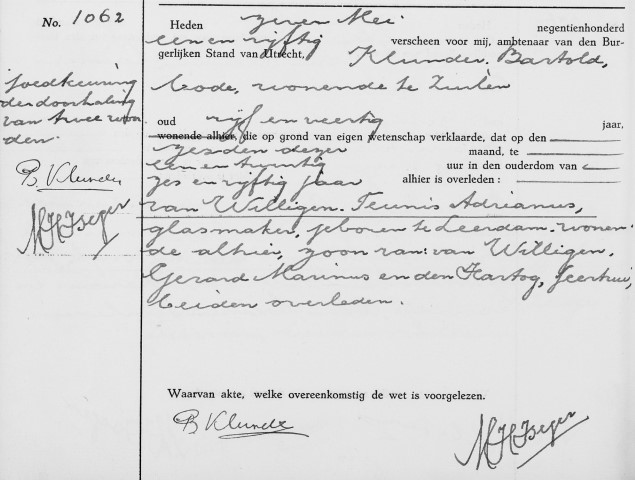 No. 1062
Heden zeven Mei negentienhonderd
een en vijftig verscheen voor mij, ambtenaar van den Bur-
gerlijken Stand van Utrecht, Klunder, Bartold,
bode, wonende te Zuilen
oud vijf en veertig jaar,
wonende alhier, die op grond van eigen wetenschap verklaarde, dat op den
zesden dezer maand, te
een en twintig uur in den ouderdom van
zes en vijftig jaar alhier is overleden :
van Willigen, Teunis Adrianus,
glasmaker, geboren te Leerdam, wonen-
de alhier, zoon van: van Willigen,
Gerard Marinus en den Hartog,
beiden overleden.
Goedkeuring
der doorhaling
van twee woor
den.
B Klunder
Waarvan akte, welke overeenkomstig de wet is voorgelezen.
B Klunder